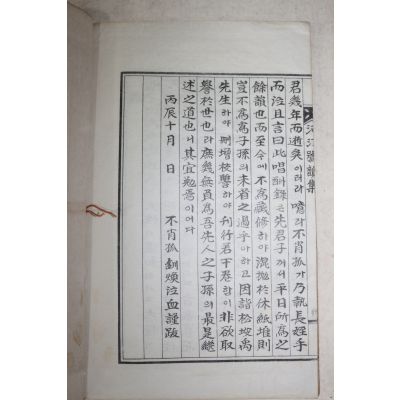 君幾年而逝矣이러라噫라不肖孤가乃執長姪手
而泣且言曰此唱酬錄은先君子께서平日所爲之
餘韻也而至今에不爲藏修하야混抛於休紙堆則
豈不爲爲子孫의未首之過乎아하고因諧松坡禹
先生하야刪增校讐하야刊行若干卷함이非欲取
譽於世也라庶幾無負爲吾先人之子孫의最是繼
述之道也니其宜勉焉이어다
丙辰十月　日　不肖孤　釧煥泣血謹跋